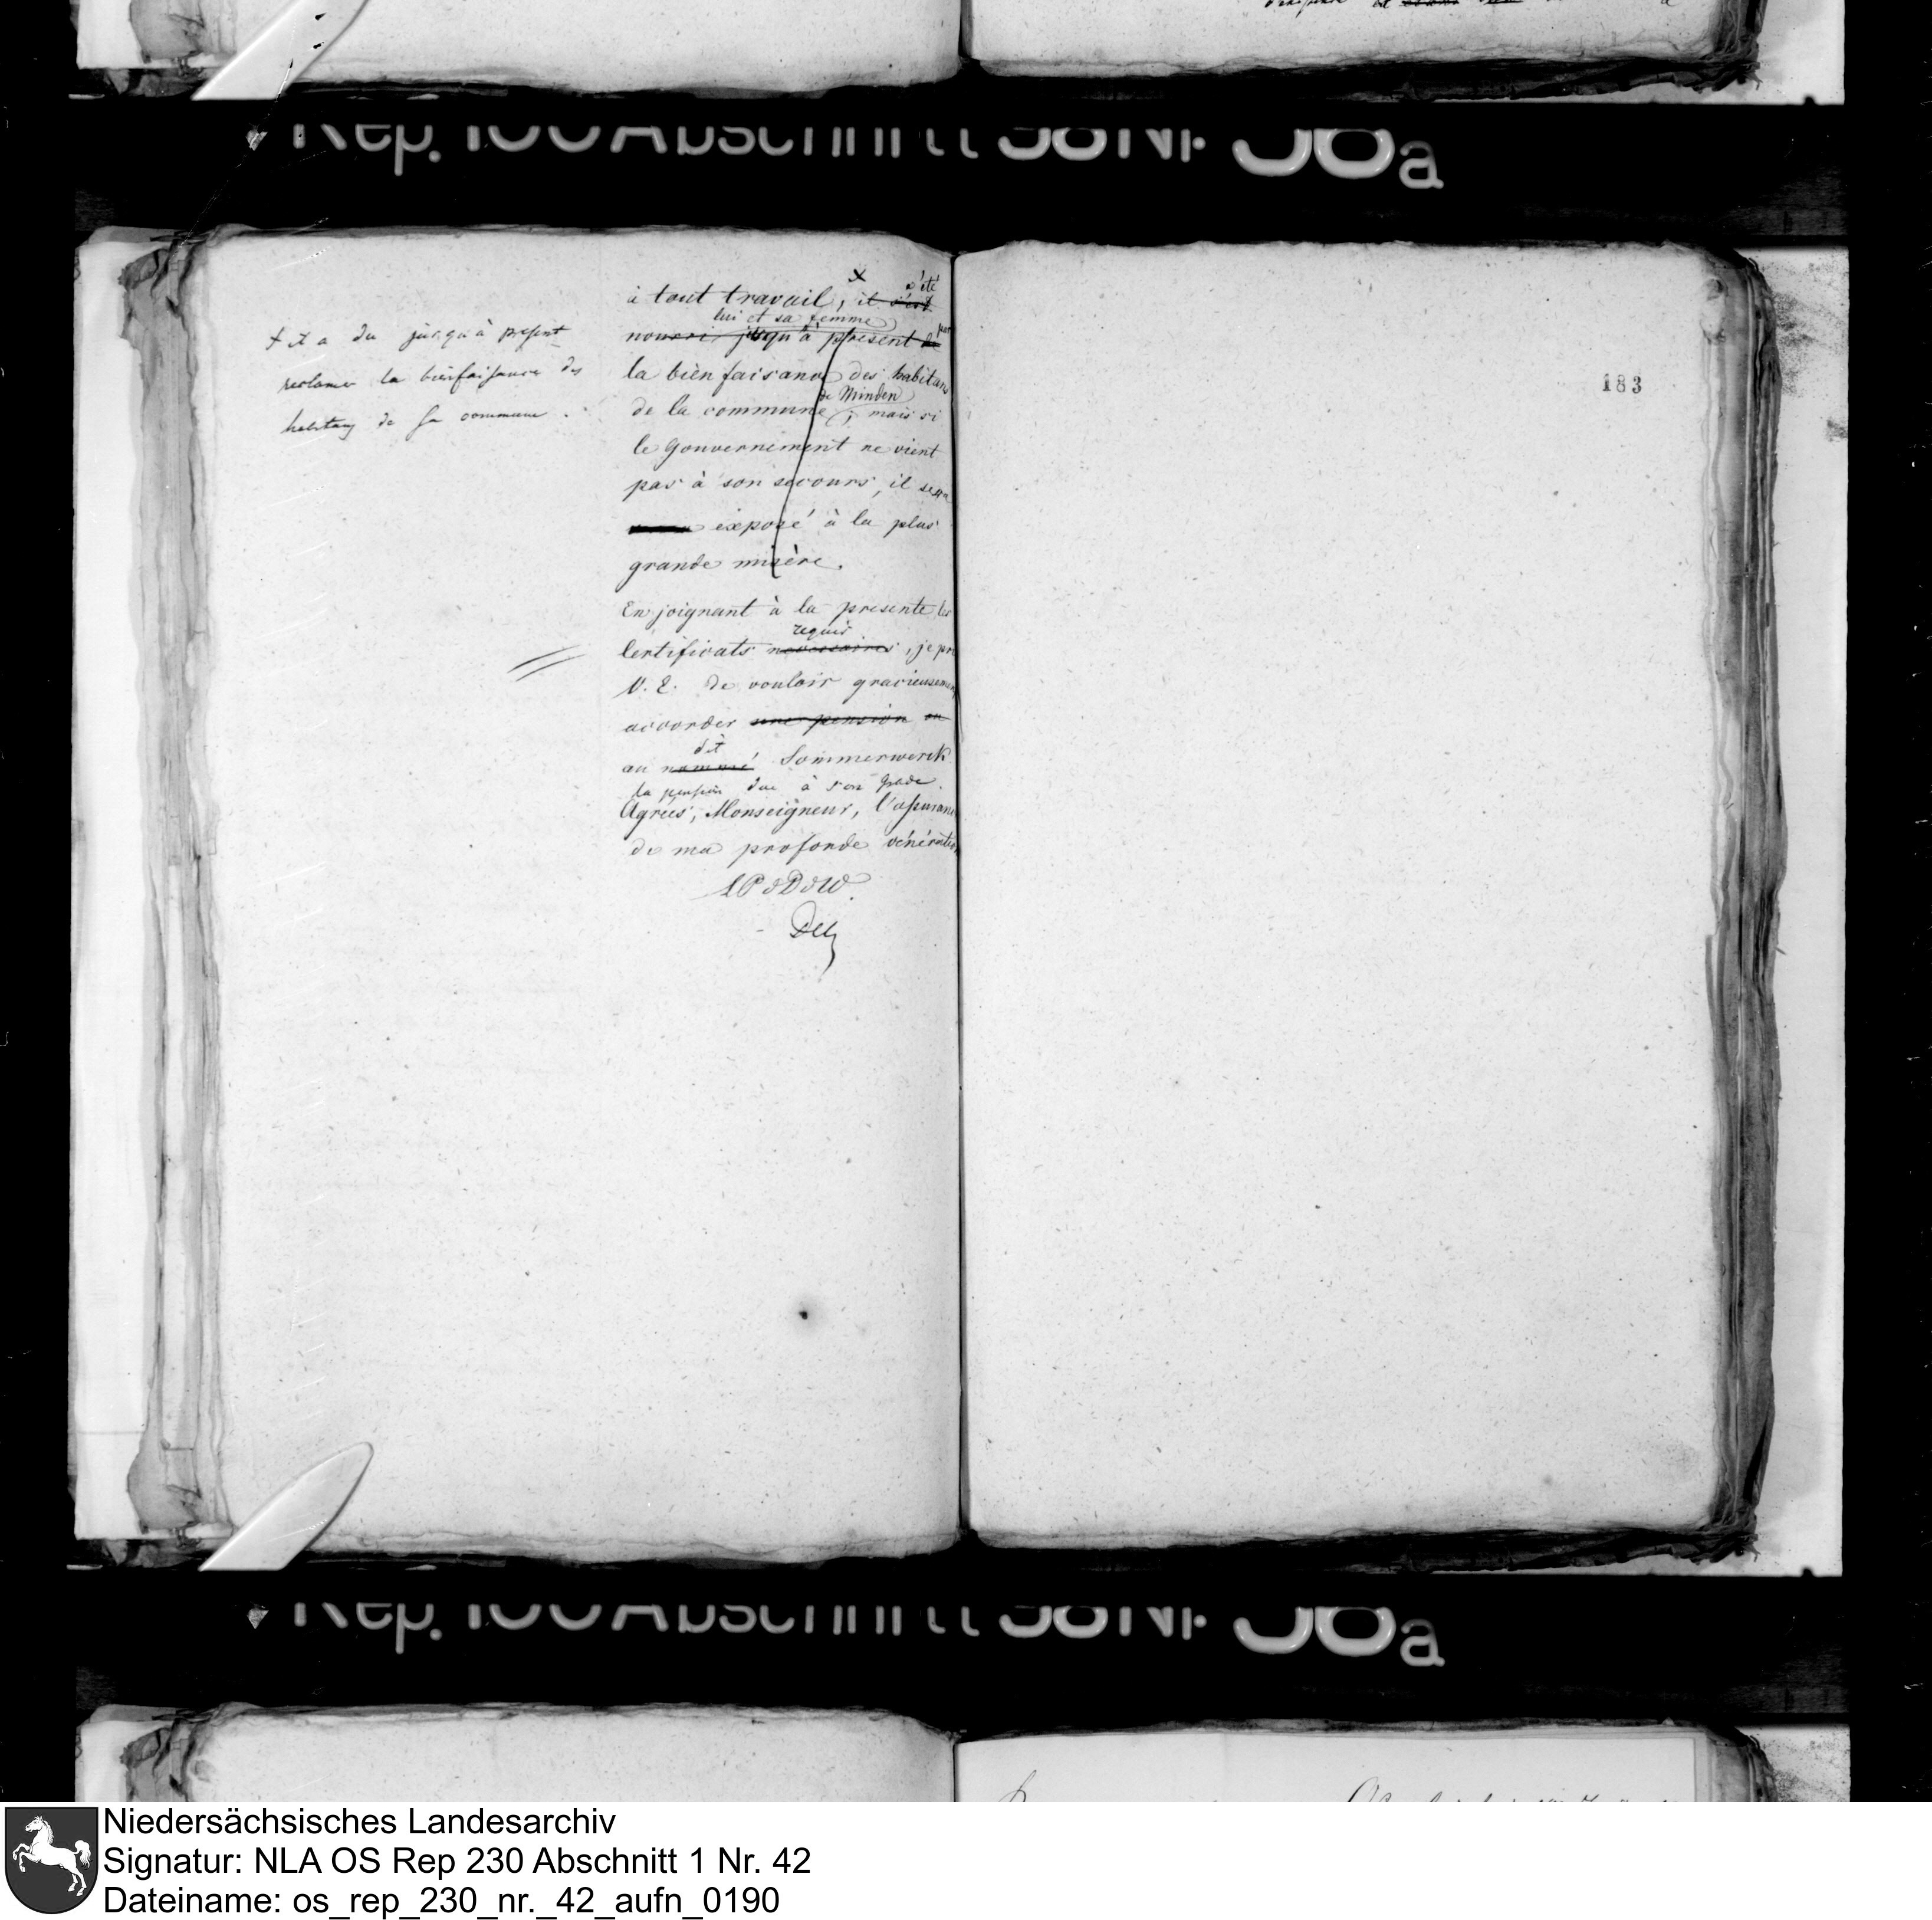 Rep. 100 Abschnitt 58 Nr 38a
+ il a du jusqu'à présent
reclamer la bienfaisance des
habitans de sa commune.
à tout travail, x il s'est a été
lui et sa femme
nourri jusqu'à present de par
la bienfaisance des habitans
de Minden
de la commune ; mais si
le Gouvernement ne vient
pas à son secours, il sera
exposé à la plus
grande misère.
En joignant à la présente les
requis
certificats necessaires, je prie
V. E. de vouloir gracieusement
accorder une pension au
dit
au nommé Sommerwerck
la pension due à son grade.
Agréés, Monseigneur, l'assurance
de ma profonde vénération
LP d D d W.
183
Rep. 100 Abschnitt 58 Nr 38a
Niedersächsisches Landesarchiv
Signatur: NLA OS Rep 230 Abschnitt 1 Nr. 42
Dateiname: os_rep_230_nr._42_aufn_0190